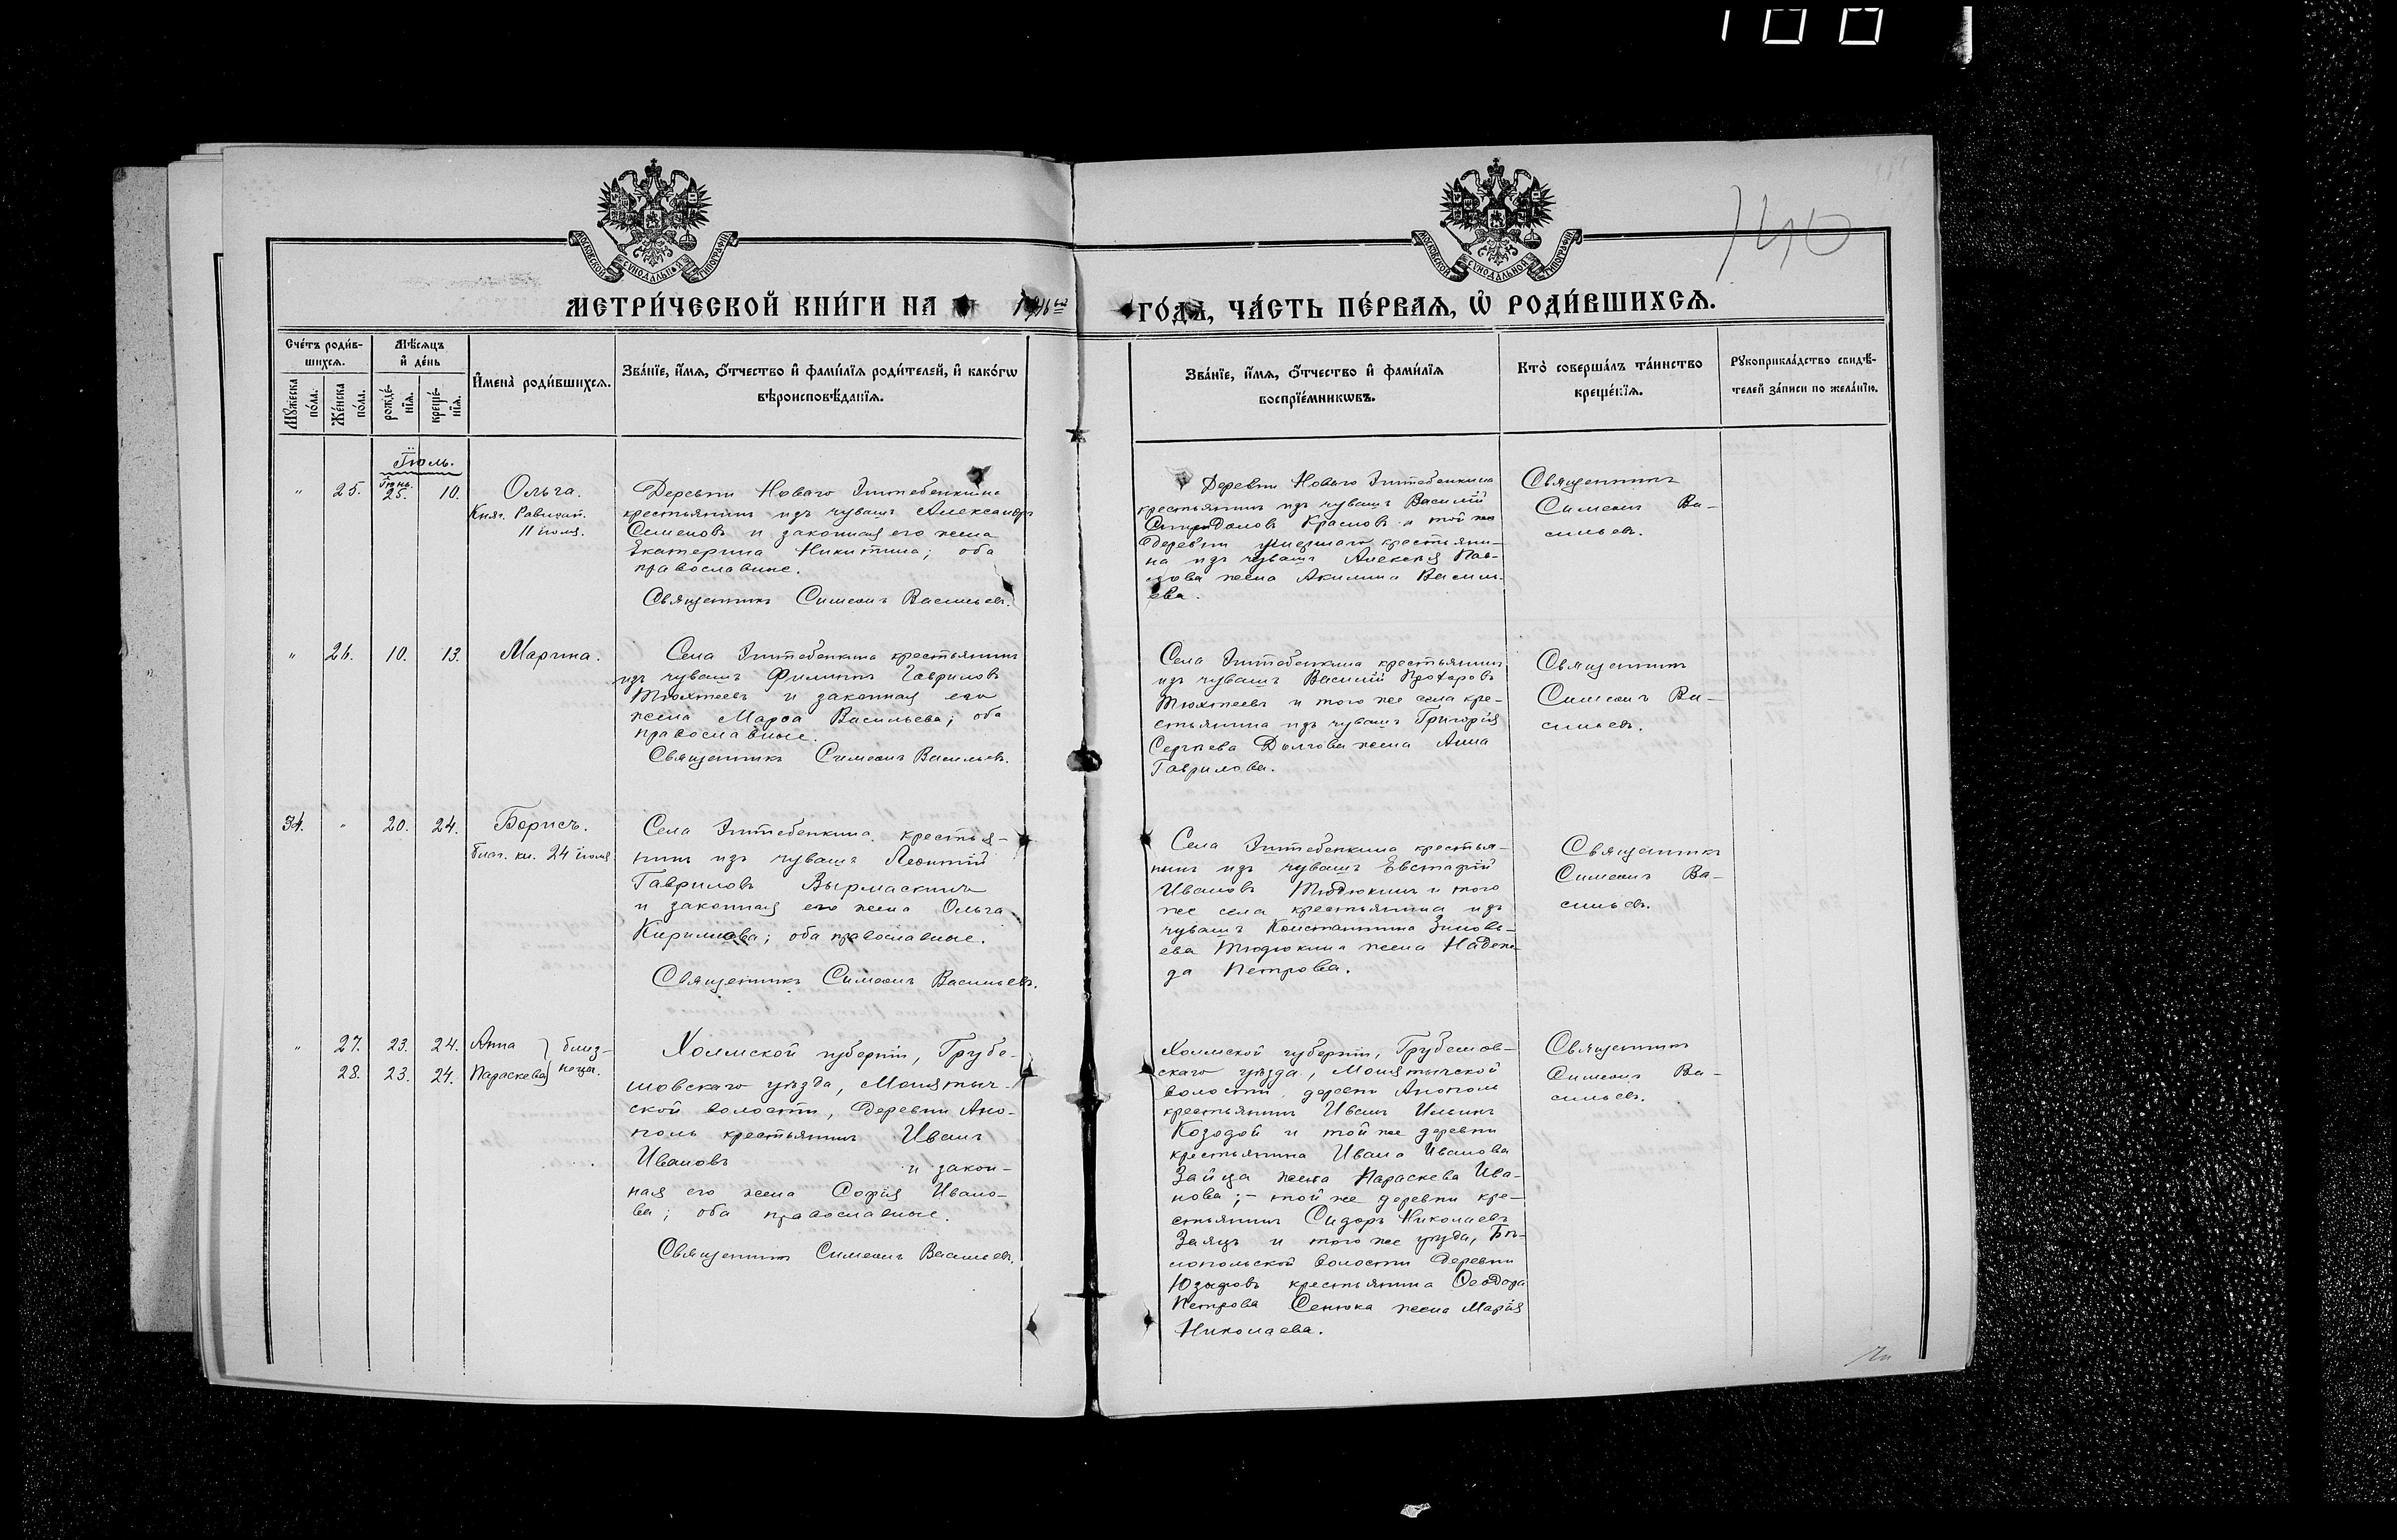 100
140
МОСКОВСКОЙ СУНОДАЛЬНОЙ ТИПОГРАФІИ
МОСКОВСКОЙ СУНОДАЛЬНОЙ ТИПОГРАФІИ
МЕТРИ́ЧЕСКОЙ КНИ́ГИ НА 1916 ГО́ДА, ЧА́СТЬ ПЕ́РВАѦ, Ѡ҆ РОДИ́ВШИХСѦ.
Сче́тъ роди́в-
шихсѧ.
Мꙋ́жеска
по́ла.
Же́нска
по́ла.
Мѣ́сѧцъ
и҆ де́нь
рожде́-
нїѧ.
креще́-
нїѧ.
И҆мена̀ роди́вшихсѧ.
Зва́нїе, и҆́мѧ, ѻ҆́тчество и҆ фами́лїѧ роди́телей, и҆ како́гѡ
вѣроисповѣ́данїѧ.
Зва́нїе, и҆́мѧ, ѻ҆́тчество и҆ фами́лїѧ
воспрїе́мникѡвъ.
Кто̀ соверша́лъ та́инство
креще́нїѧ.
Рꙋкоприкла́дство свидѣ́-
телей за́писи по жела́нїю.
Іюль.
" 25. Іюнь. 25. 10.
Ольга.
Княг. Равноап.
11 іюля.
Деревни Новаго Эштебенкина
крестьянинъ изъ чувашъ Александръ
Семеновъ и законная его жена
Екатерина Никитина; оба
православные.
Священникъ Симеонъ Васильевъ.
Деревни Новаго Эштебенкина
крестьянинъ изъ чувашъ Василій
Спиридоновъ Красновъ и той же
деревни умершаго крестьяни-
на изъ чувашъ Алексѣя Пав-
лова жена Акилина Василь-
ева.
Священникъ
Симеонъ Ва-
сильевъ.
" 26. 10. 13.
Марина.
Села Эштебенкина крестьянинъ
изъ чувашъ Филиппъ Гавриловъ
Тюхтеевъ и законная его
жена Марѳа Васильева; оба
православные.
Священникъ Симеонъ Васильевъ.
Села Эштебенкина крестьянинъ
изъ чувашъ Василій Прохоровъ
Тюхтеевъ и того же села кре-
стьянина изъ чувашъ Григорія
Сергѣева Долгова жена Анна
Гаврилова.
Священникъ
Симеонъ Ва-
сильевъ.
34. " 20. 24.
Борисъ.
Благ. кн. 24 іюля
Села Эштебенкина крестья-
нинъ изъ чувашъ Леонтій
Гавриловъ Вырмаскинъ
и законная его жена Ольга
Кириллова; оба православные.
Священникъ Симеонъ Васильевъ.
Села Эштебенкина крестья-
нинъ изъ чувашъ Евстафій
Ивановъ Тюдюкинъ и того
же села крестьянина изъ
чувашъ Константина Зиновь-
ева Тюдюкина жена Надеж-
да Петрова.
Священникъ
Симеонъ Ва-
сильевъ.
" 27. 23. 24. Анна } близ-
28. 23. 24. Параскева } нецы.
Холмской губерніи, Грубе-
шовскаго уѣзда, Монятыч-
ской волости, деревни Ано-
поль крестьянинъ Иванъ
Ивановъ и закон-
ная его жена Софія Ивано-
ва; оба православные.
Священникъ Симеонъ Васильевъ.
Холмской губерніи, Грубешов-
скаго уѣзда, Монятычской
волости, деревни Анополь
крестьянинъ Иванъ Ильинъ
Козодой и той же деревни
крестьянина Ивана Иванова
Зайца жена Параскева Ива-
нова; – той же деревни кре-
стьянинъ Сидоръ Николаевъ
Заяцъ и того же уѣзда, Бѣ-
лопольской волости деревни
Юзефовъ крестьянина Ѳеодора
Петрова Сенюка жена Марія
Николаева.
Священникъ
Симеонъ Ва-
сильевъ.